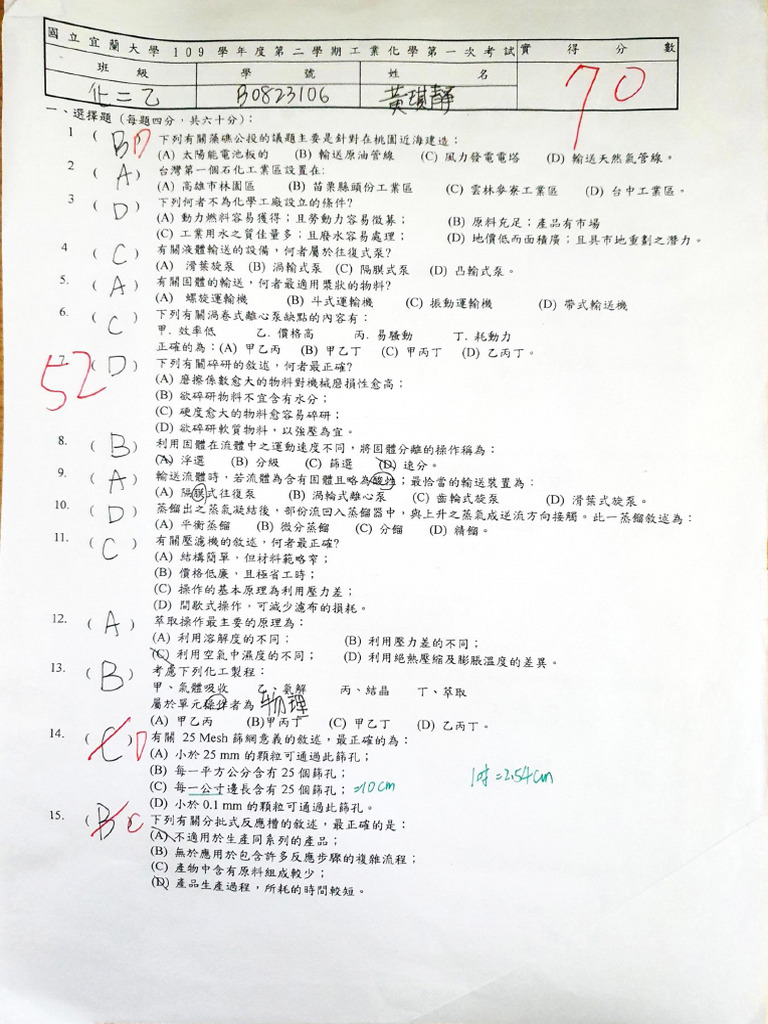 國立宜蘭大學109學年度第二學期工業化學第一次考試 實得分數
班級 學號 姓名 70
化二乙 B0823106 黃琪靜
一、選擇題(每題四分,共六十分):
1 ( B D ) 下列有關藻礁公投的議題主要是針對在桃園近海建造:
(A) 太陽能電池板的 (B) 輸送原油管線 (C) 風力發電電塔 (D) 輸送天然氣管線。
2 ( A ) 台灣第一個石化工業區設置在:
(A) 高雄市林園區 (B) 苗栗縣頭份工業區 (C) 雲林麥寮工業區 (D) 台中工業區。
3 ( D ) 下列何者不為化學工廠設立的條件?
(A) 動力燃料容易獲得;且勞動力容易徵募; (B) 原料充足;產品有市場
(C) 工業用水之質佳量多;且廢水容易處理; (D) 地價低而面積廣;且具市地重劃之潛力。
4 ( C ) 有關液體輸送的設備,何者屬於往復式泵?
(A) 滑葉旋泵 (B) 渦輪式泵 (C) 隔膜式泵 (D) 凸輪式泵。
5. ( A ) 有關固體的輸送,何者最適用漿狀的物料?
(A) 螺旋運輸機 (B) 斗式運輸機 (C) 振動運輸機 (D) 帶式輸送機
6. ( C ) 下列有關渦卷式離心泵缺點的內容有:
甲. 效率低 乙. 價格高 丙. 易騷動 丁. 耗動力
正確的為:(A) 甲乙丙 (B) 甲乙丁 (C) 甲丙丁 (D) 乙丙丁。
52
7. ( D ) 下列有關碎研的敘述,何者最正確?
(A) 磨擦係數愈大的物料對機械磨損性愈高;
(B) 欲碎研物料不宜含有水分;
(C) 硬度愈大的物料愈容易碎研;
(D) 欲碎研軟質物料,以強壓為宜。
8. ( B ) 利用固體在流體中之運動速度不同,將固體分離的操作稱為:
(A) 浮選 (B) 分級 (C) 篩選 (D) 速分。
9. ( A ) 輸送流體時,若流體為含有固體且略為酸性;最恰當的輸送裝置為:
(A) 隔膜式往復泵 (B) 渦輪式離心泵 (C) 齒輪式旋泵 (D) 滑葉式旋泵。
10. ( D ) 蒸餾出之蒸氣凝結後,部份流回入蒸餾器中,與上升之蒸氣成逆流方向接觸。此一蒸餾敘述為:
(A) 平衡蒸餾 (B) 微分蒸餾 (C) 分餾 (D) 精餾。
11. ( C ) 有關壓濾機的敘述,何者最正確?
(A) 結構簡單,但材料範略窄;
(B) 價格低廉,且極省工時;
(C) 操作的基本原理為利用壓力差;
(D) 間歇式操作,可減少濾布的損耗。
12. ( A ) 萃取操作最主要的原理為:
(A) 利用溶解度的不同; (B) 利用壓力差的不同;
(C) 利用空氣中濕度的不同; (D) 利用絕熱壓縮及膨脹溫度的差異。
13. ( B ) 考慮下列化工製程:
甲、氣體吸收 乙、氣解 丙、結晶 丁、萃取
屬於單元操作者為 物理
(A) 甲乙丙 (B)甲丙丁 (C) 甲乙丁 (D) 乙丙丁。
14. ( C ) D 有關 25 Mesh 篩網意義的敘述,最正確的為:
(A) 小於 25 mm 的顆粒可通過此篩孔;
(B) 每一平方公分含有 25 個篩孔; 1吋=2.54cm
(C) 每一公寸邊長含有 25 個篩孔; =10cm
(D) 小於 0.1 mm 的顆粒可通過此篩孔。
15. ( B ) C 下列有關分批式反應槽的敘述,最正確的是:
(A) 不適用於生產同系列的產品;
(B) 無於應用於包含許多反應步驟的複雜流程;
(C) 產物中含有原料組成較少;
(D) 產品生產過程,所耗的時間較短。